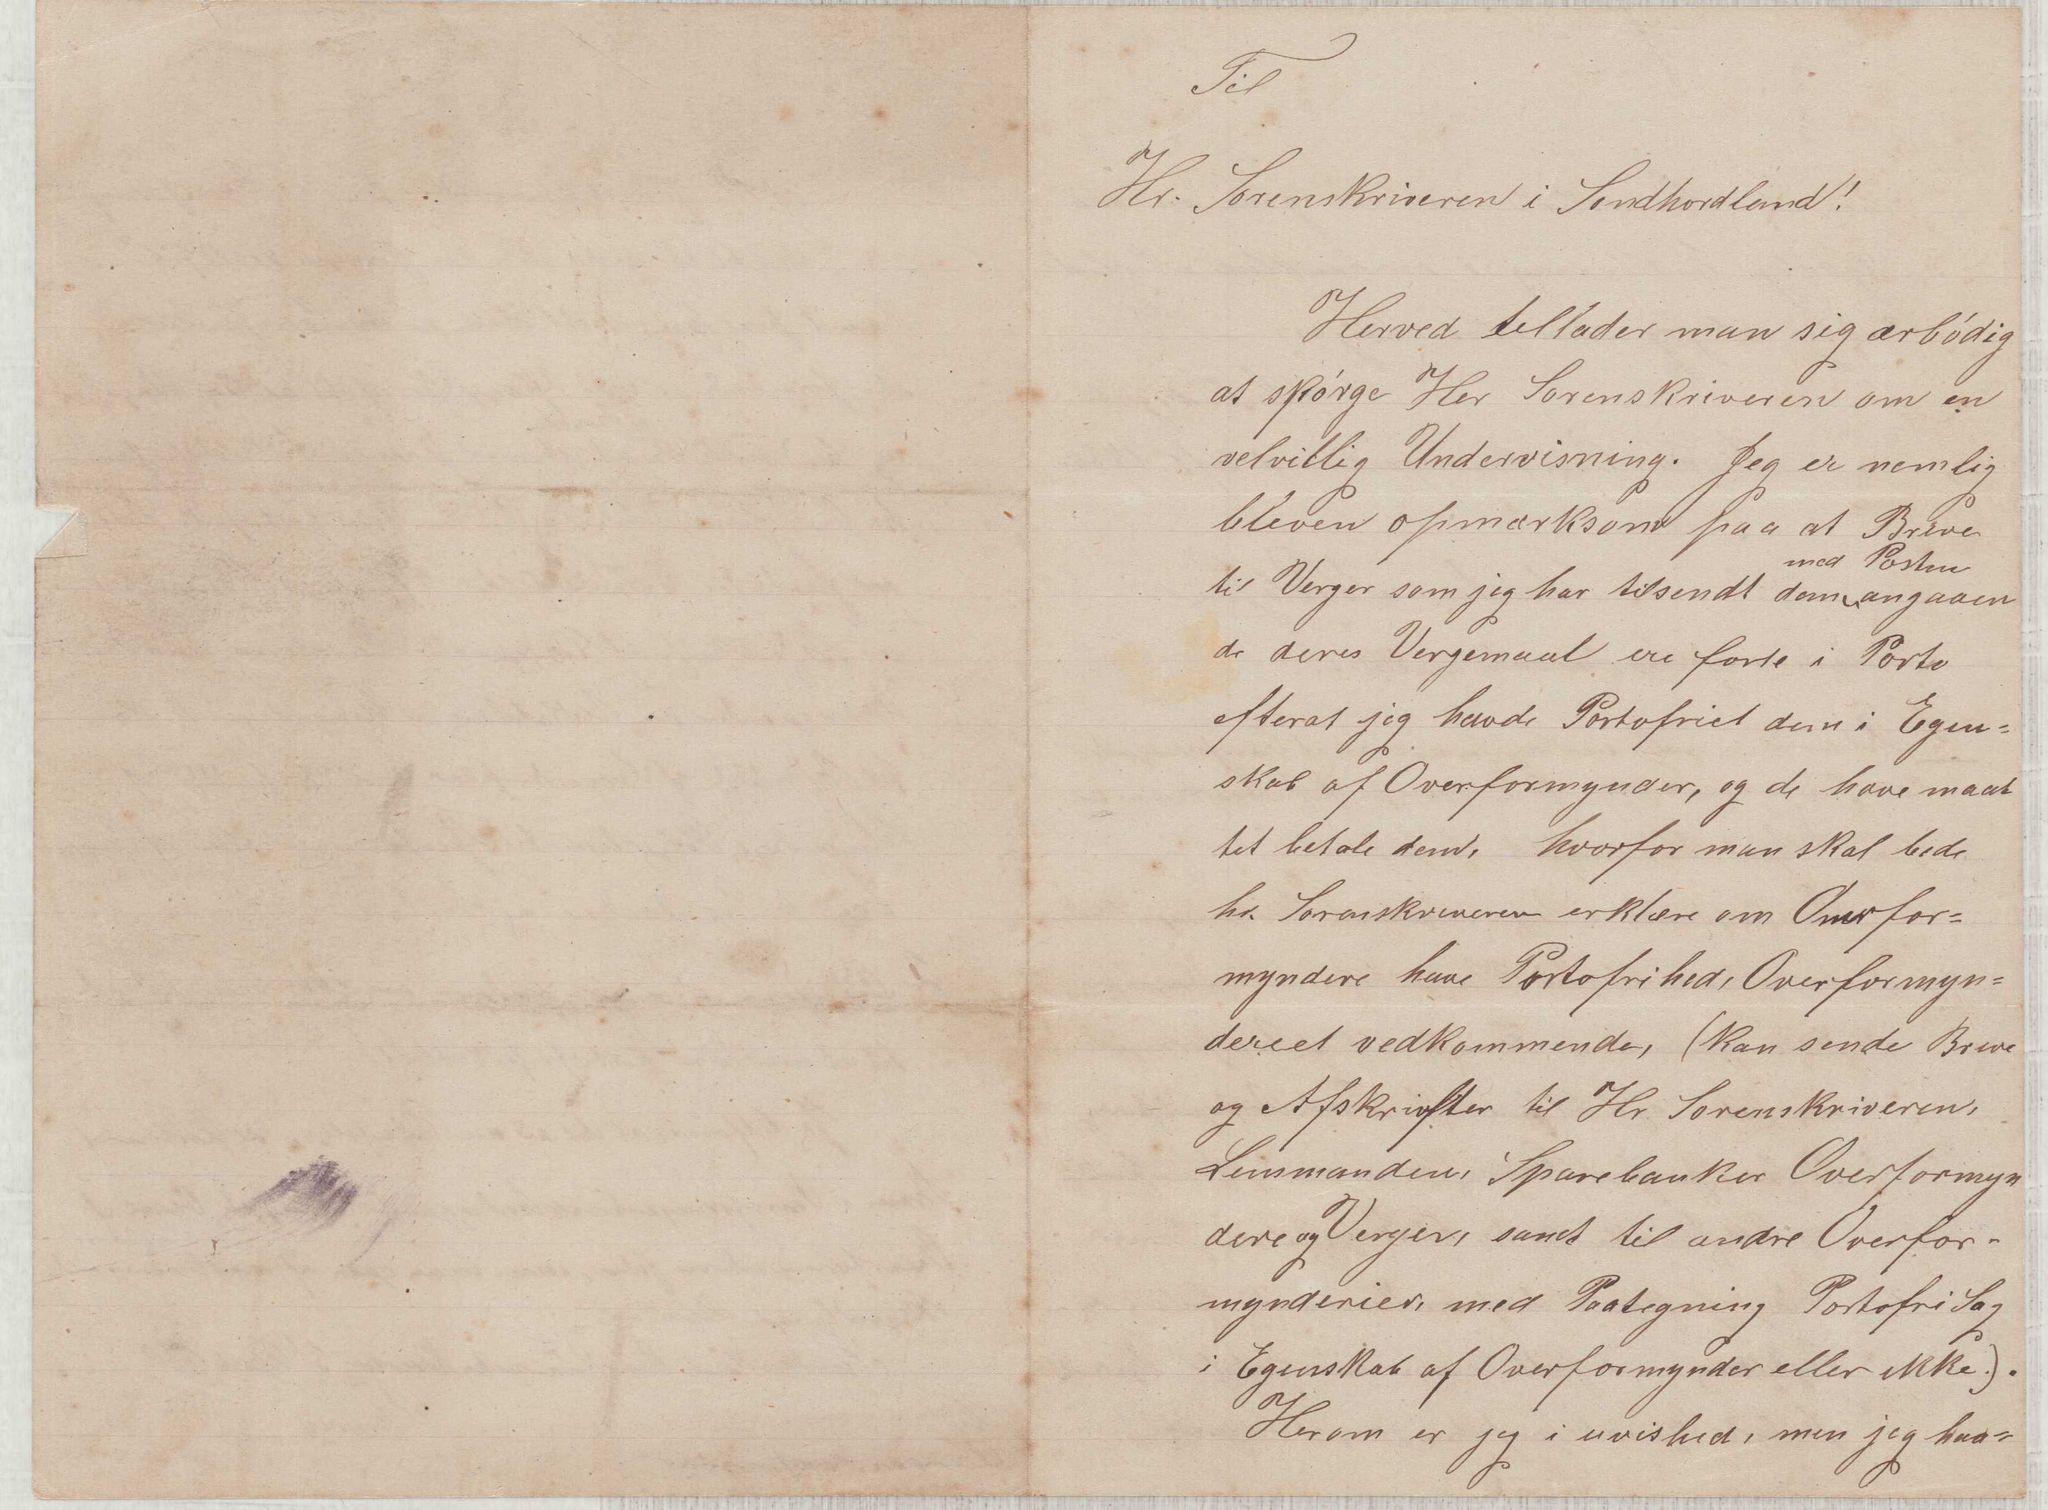 Til
Hr. Sorenskriveren i Søndhordland!
Herved tillader man sig ærbódig
at spórge Her Sorenskriveren om en
velvillig Undervisning. Jeg er nemlig
bleven opmærksom paa at Breve
med Posten
til Verger som jeg har tilsendt dem angaaen
de deres Vergemaal ere førte i Porto
efterat jeg havde Portofriet dem i Egen=
skab af Overformynder, og de have maat
tet betale dem, hvorfor man skal bede
hr. Sorenskriveren erklære om Overfor=
myndere have Portofrihed, Overformyn=
deriet vedkommende, (kan sende Breve
og Afskrifter til Hr Sorenskriveren,
Lensmanden, Sparebanker Overformyn
dere og Verger, samt til andre Overfor=
mynderier, med Paategning Portofri Sag
i Egenskab af Overformynder eller ikke.).
Herom er jeg i uvished, men jeg haa=